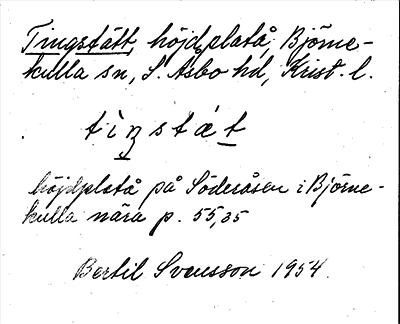 Tingstätt, höjdplatå, Björne-
kulla sn, S. Åsbo hd, Krist. l.
tìŋstät
höjdplatå på Söderåsen i Björne-
kulla nära p. 55,05
Bertil Svensson 1954.